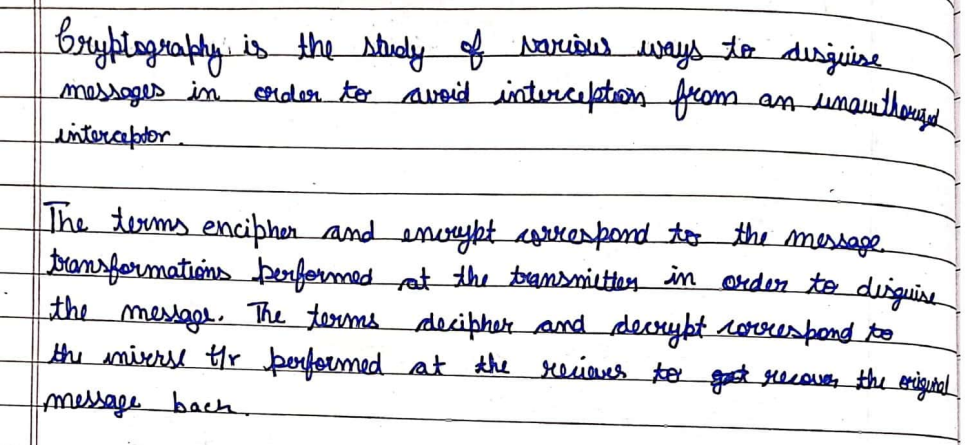 Cryptography is the study of various ways to disguise
messages in order to avoid interception from an unauthorized
interceptor.
The terms encipher and encrypt correspond to the message
transformations performed at the transmitter in order to disguise
the message. The terms decipher and decrypt correspond to
the inverse t/r performed at the reciever to recover the original
message back.